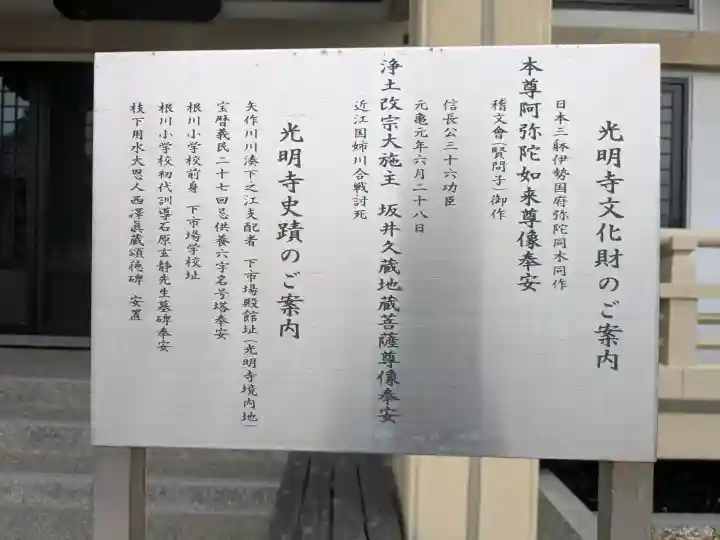 光明寺文化財のご案内
日本三躰伊勢国府弥陀同木同作
本尊阿弥陀如来尊像奉安
稽文會(賢問子)御作
信長公三十六功臣
元亀元年六月二十八日
浄土改宗大施主 坂井久蔵地蔵菩薩尊像奉安
近江国姉川合戦討死
光明寺史蹟のご案内
矢作川川湊下之江支配者 下市場殿館址(光明寺境内地)
宝暦義民二十七回忌供養六字名号塔奉安
根川小学校前身 下市場学校址
根川小学校初代訓導石原玄静先生墓碑奉安
枝下用水大恩人西澤眞蔵頌徳碑 安置